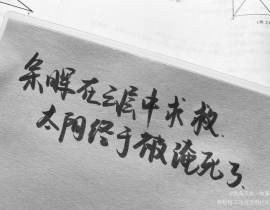 余晖在云层中求救.
太阳终于被淹死了.